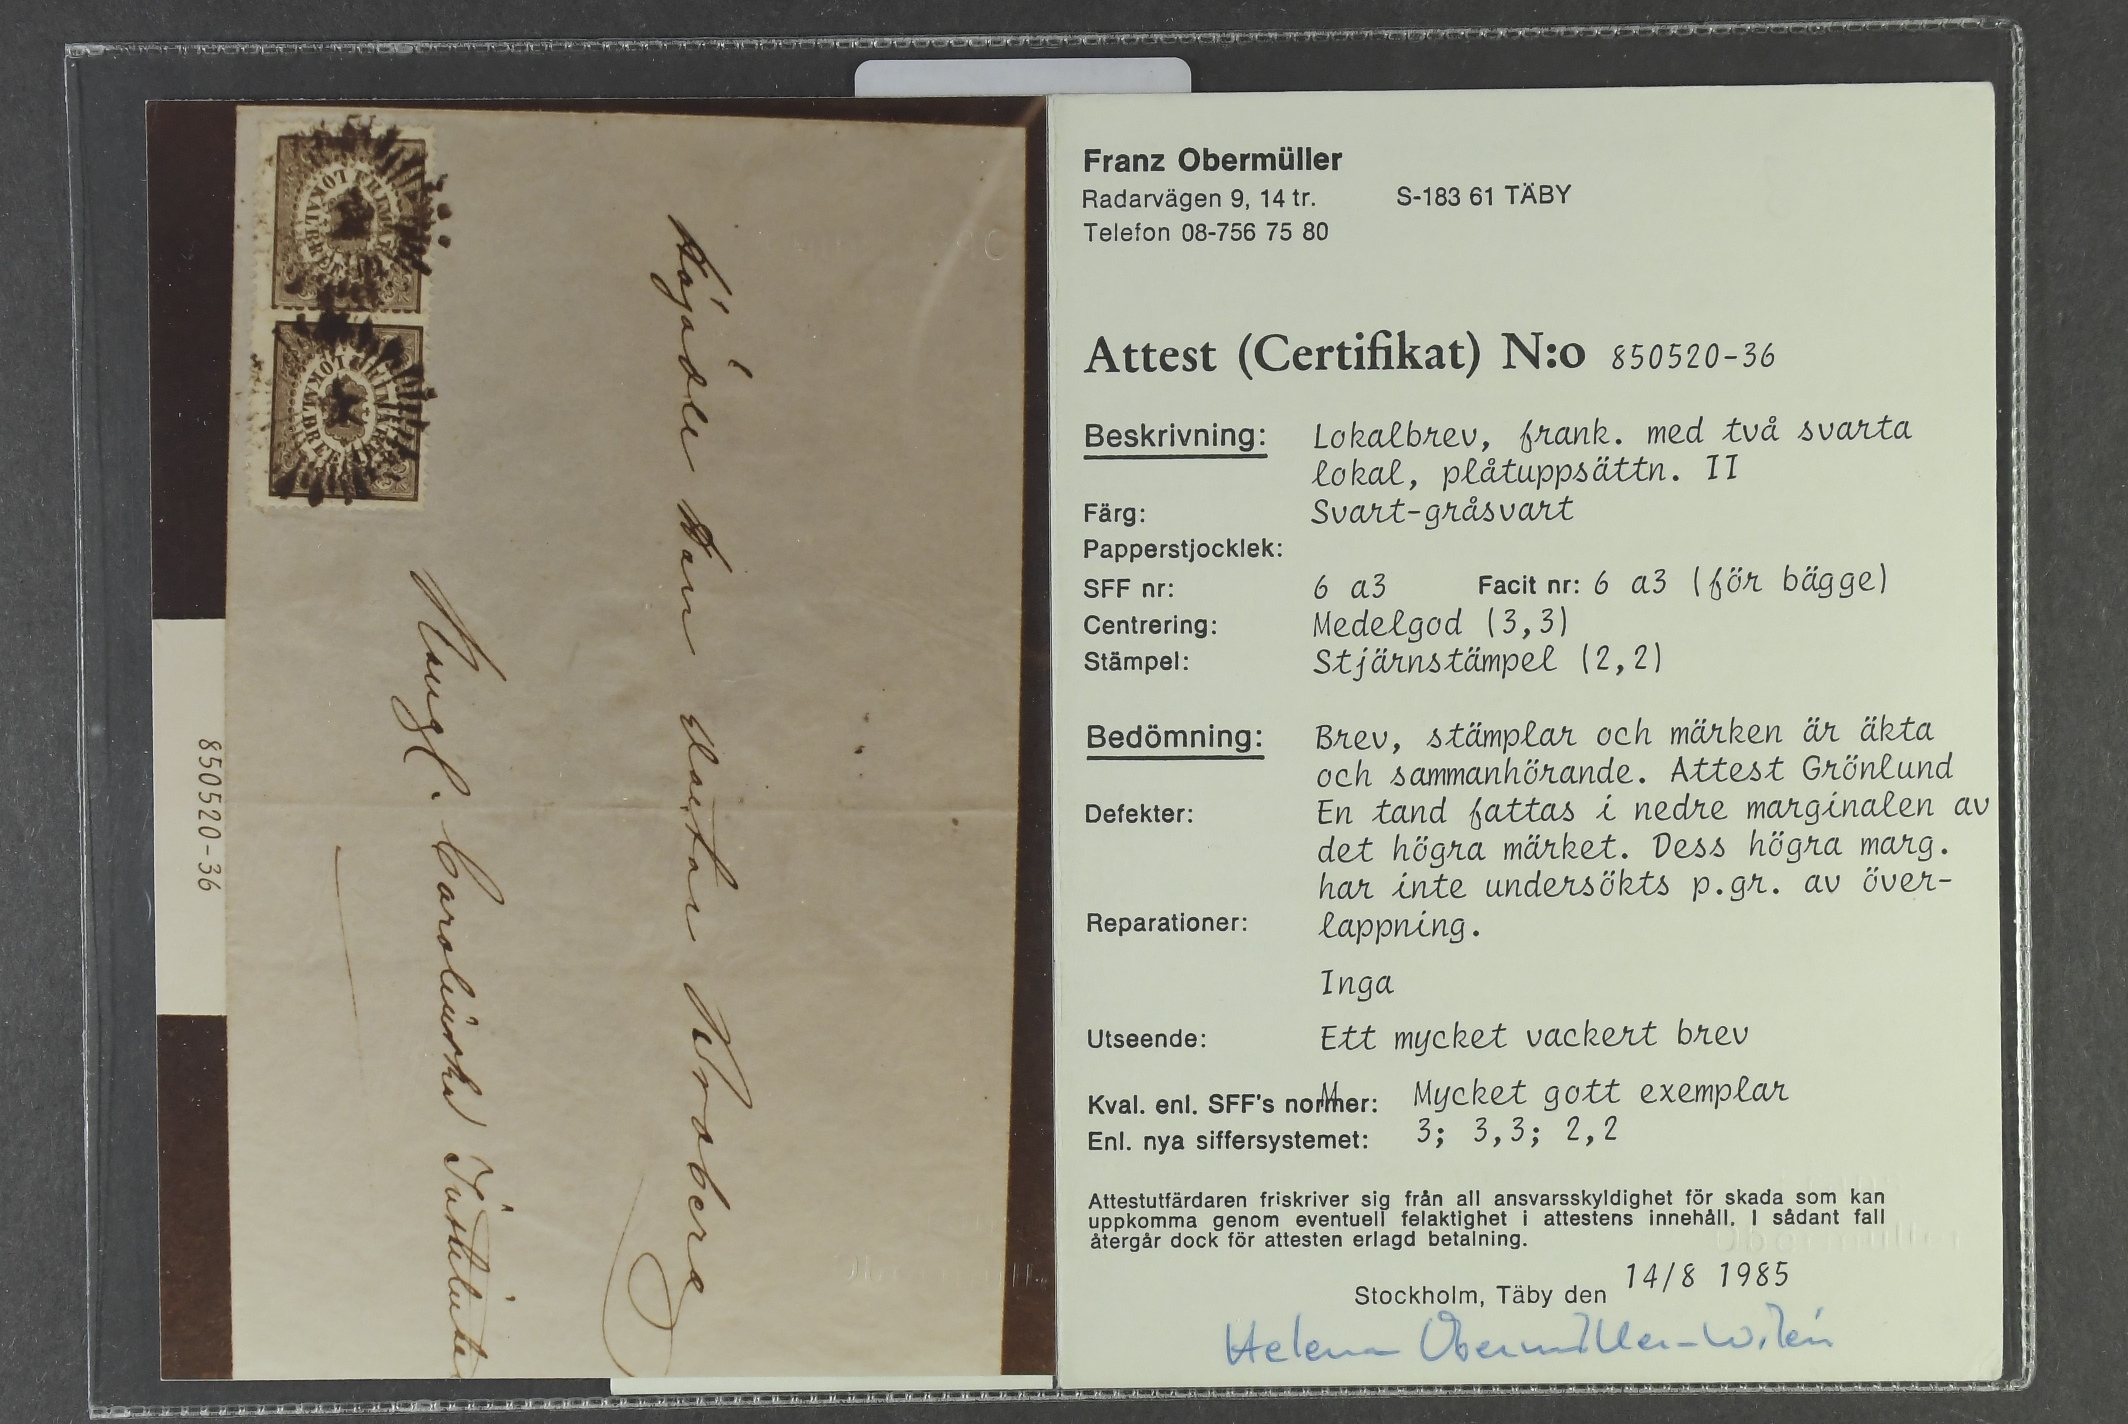 Högädle Herr Doctor Kroberg
Kungl. Carolinska
850520-36
FRIMÄRKE FÖR LOKALBREF
Franz Obermüller
Radarvägen 9, 14 tr. S-183 61 TÄBY
Telefon 08-756 75 80
Attest (Certifikat) N:o 850520-36
Beskrivning: Lokalbrev, frank. med två svarta
lokal, plåtuppsättn. II
Färg: Svart-gråsvart
Papperstjocklek:
SFF nr: 6 a3 Facit nr: 6 a3 (för bägge)
Centrering: Medelgod (3,3)
Stämpel: Stjärnstämpel (2,2)
Bedömning: Brev, stämplar och märken är äkta
och sammanhörande. Attest Grönlund
Defekter: En tand fattas i nedre marginalen av
det högra märket. Dess högra marg.
har inte undersökts p.gr. av över-
Reparationer: lappning.
Inga
Utseende: Ett mycket vackert brev
Kval. enl. SFF's normer: Mycket gott exemplar
Enl. nya siffersystemet: 3; 3,3; 2,2
Attestutfärdaren friskriver sig från all ansvarsskyldighet för skada som kan
uppkomma genom eventuell felaktighet i attestens innehåll. I sådant fall
återgår dock för attesten erlagd betalning.
Stockholm, Täby den 14/8 1985
Helena Obermüller-Wilén